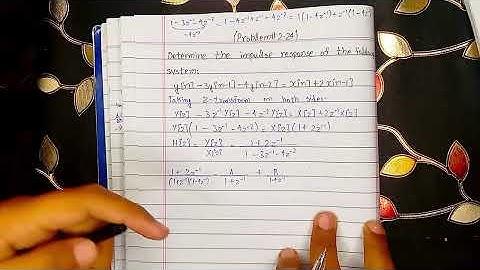 1-3z⁻¹-4z⁻² = 1-4z⁻¹+z⁻¹-4z⁻² = 1(1-4z⁻¹)+z⁻¹(1-4z⁻¹)
-4z⁻²
(Problem# 2.24)
Determine the impulse response of the
system:
y[n]-3y[n-1]-4y[n-2]=x[n]+2x[n-1]
Taking Z-transform on both sides:
Y[z]-3z⁻¹Y[z]-4z⁻²Y[z]=X[z]+2z⁻¹X[z]
Y[z](1-3z⁻¹-4z⁻²)=X[z](1+2z⁻¹)
H[z]=Y[z]/X[z]=1+2z⁻¹/1-3z⁻¹-4z⁻²
1+2z⁻¹/(1+z⁻¹)(1-4z⁻¹) = A/1+z⁻¹ + B/1-4z⁻¹